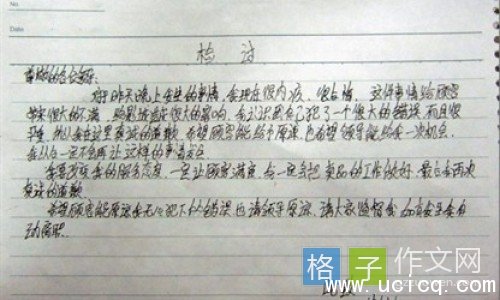 No.
Date
检讨
尊敬的各位领导:
对于昨天晚上发生的事情,我现在很内疚,很自责,这件事情给顾客
带来很大的不满,给影城造成很大的影响,我认识到自己犯了一个很大的错误,而且很
严重,所以我在这里真诚的道歉,希望顾客能给予原谅,也希望领导能给我一次机会,
我从今一定不会再让这样的事情发生
我要改变我的服务态度,一定让顾客满意,我一定会把卖品的工作做好,最后我再次
真诚的道歉
希望顾客能原谅我无心犯下的错误,也请领导原谅,请大家监督我,如有再生我自
动离职.
格子作文网
www.uctcq.com